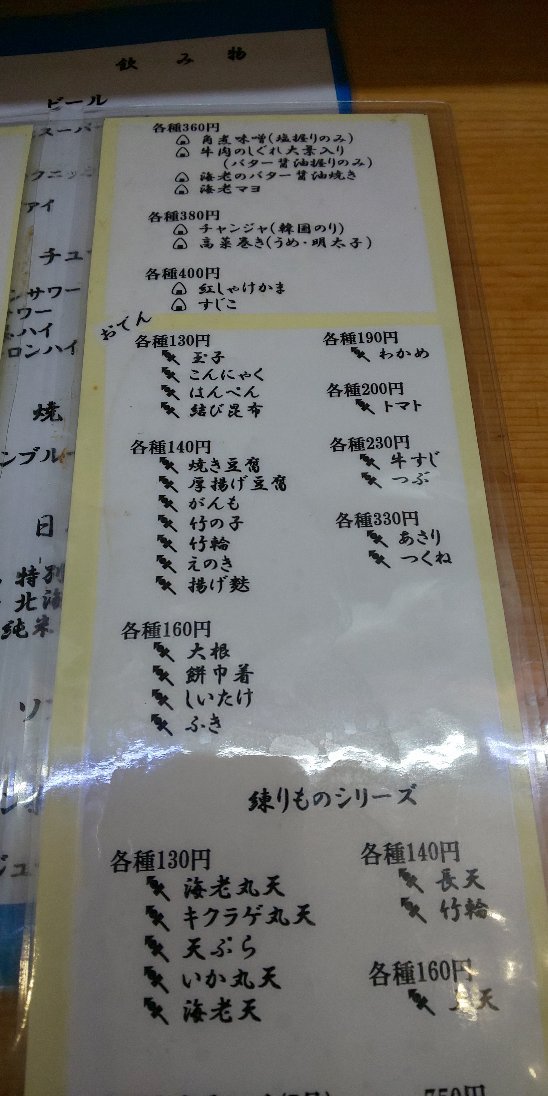 飲み物
ビール
スーパー
クニッ
アイ
チュ
ンサワー
ワー
ハイ
ロンハイ
焼
ンブル
日
特別
北海
純米
ソ
各種360円
角煮味噌(塩握りのみ)
牛肉のしぐれ大葉入り
(バター醤油握りのみ)
海老のバター醤油焼き
海老マヨ
各種380円
チャンジャ(韓国のり)
高菜巻き(うめ・明太子)
各種400円
紅しゃけかま
すじこ
おでん
各種130円
玉子
こんにゃく
はんぺん
結び昆布
各種140円
焼き豆腐
厚揚げ豆腐
がんも
竹の子
竹輪
えのき
揚げ麩
各種160円
大根
餅巾着
しいたけ
ふき
各種190円
わかめ
各種200円
トマト
各種230円
牛すじ
つぶ
各種330円
あさり
つくね
練りものシリーズ
各種130円
海老丸天
キクラゲ丸天
天ぷら
いか丸天
海老天
各種140円
長天
竹輪
各種160円
天
750円